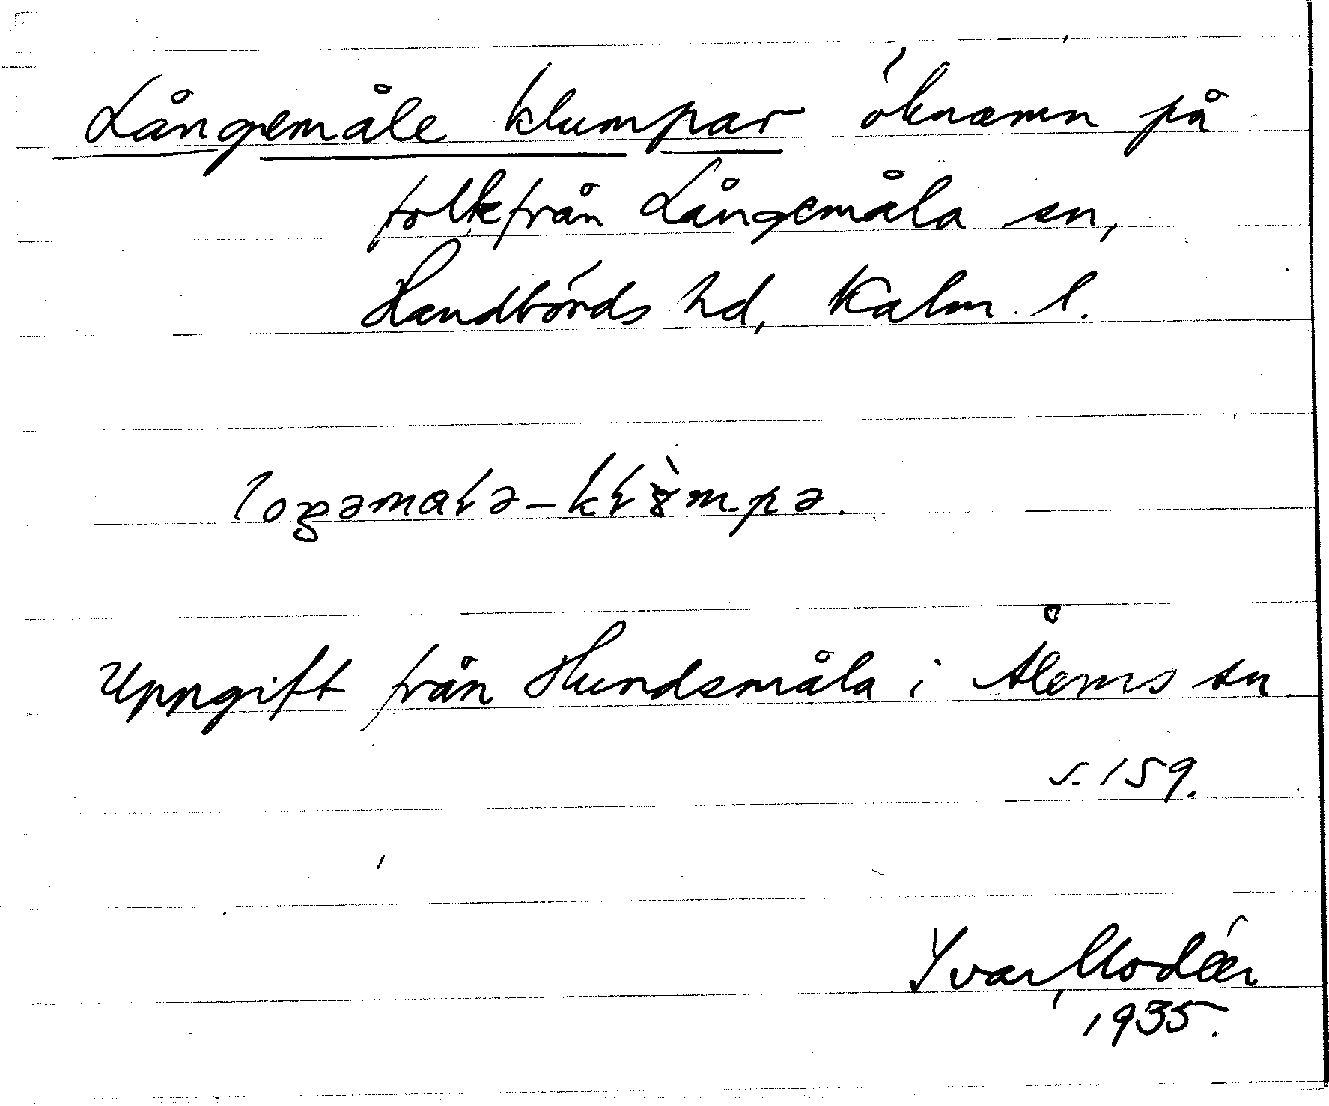 Långemåle klumpar öknamn på
folk från Långemåla sn,
Handbörds hd, Kalm. l.
Uppgift från Hundsmåla i Ålems sn
s. 159.
Yvar Modéer
1935.